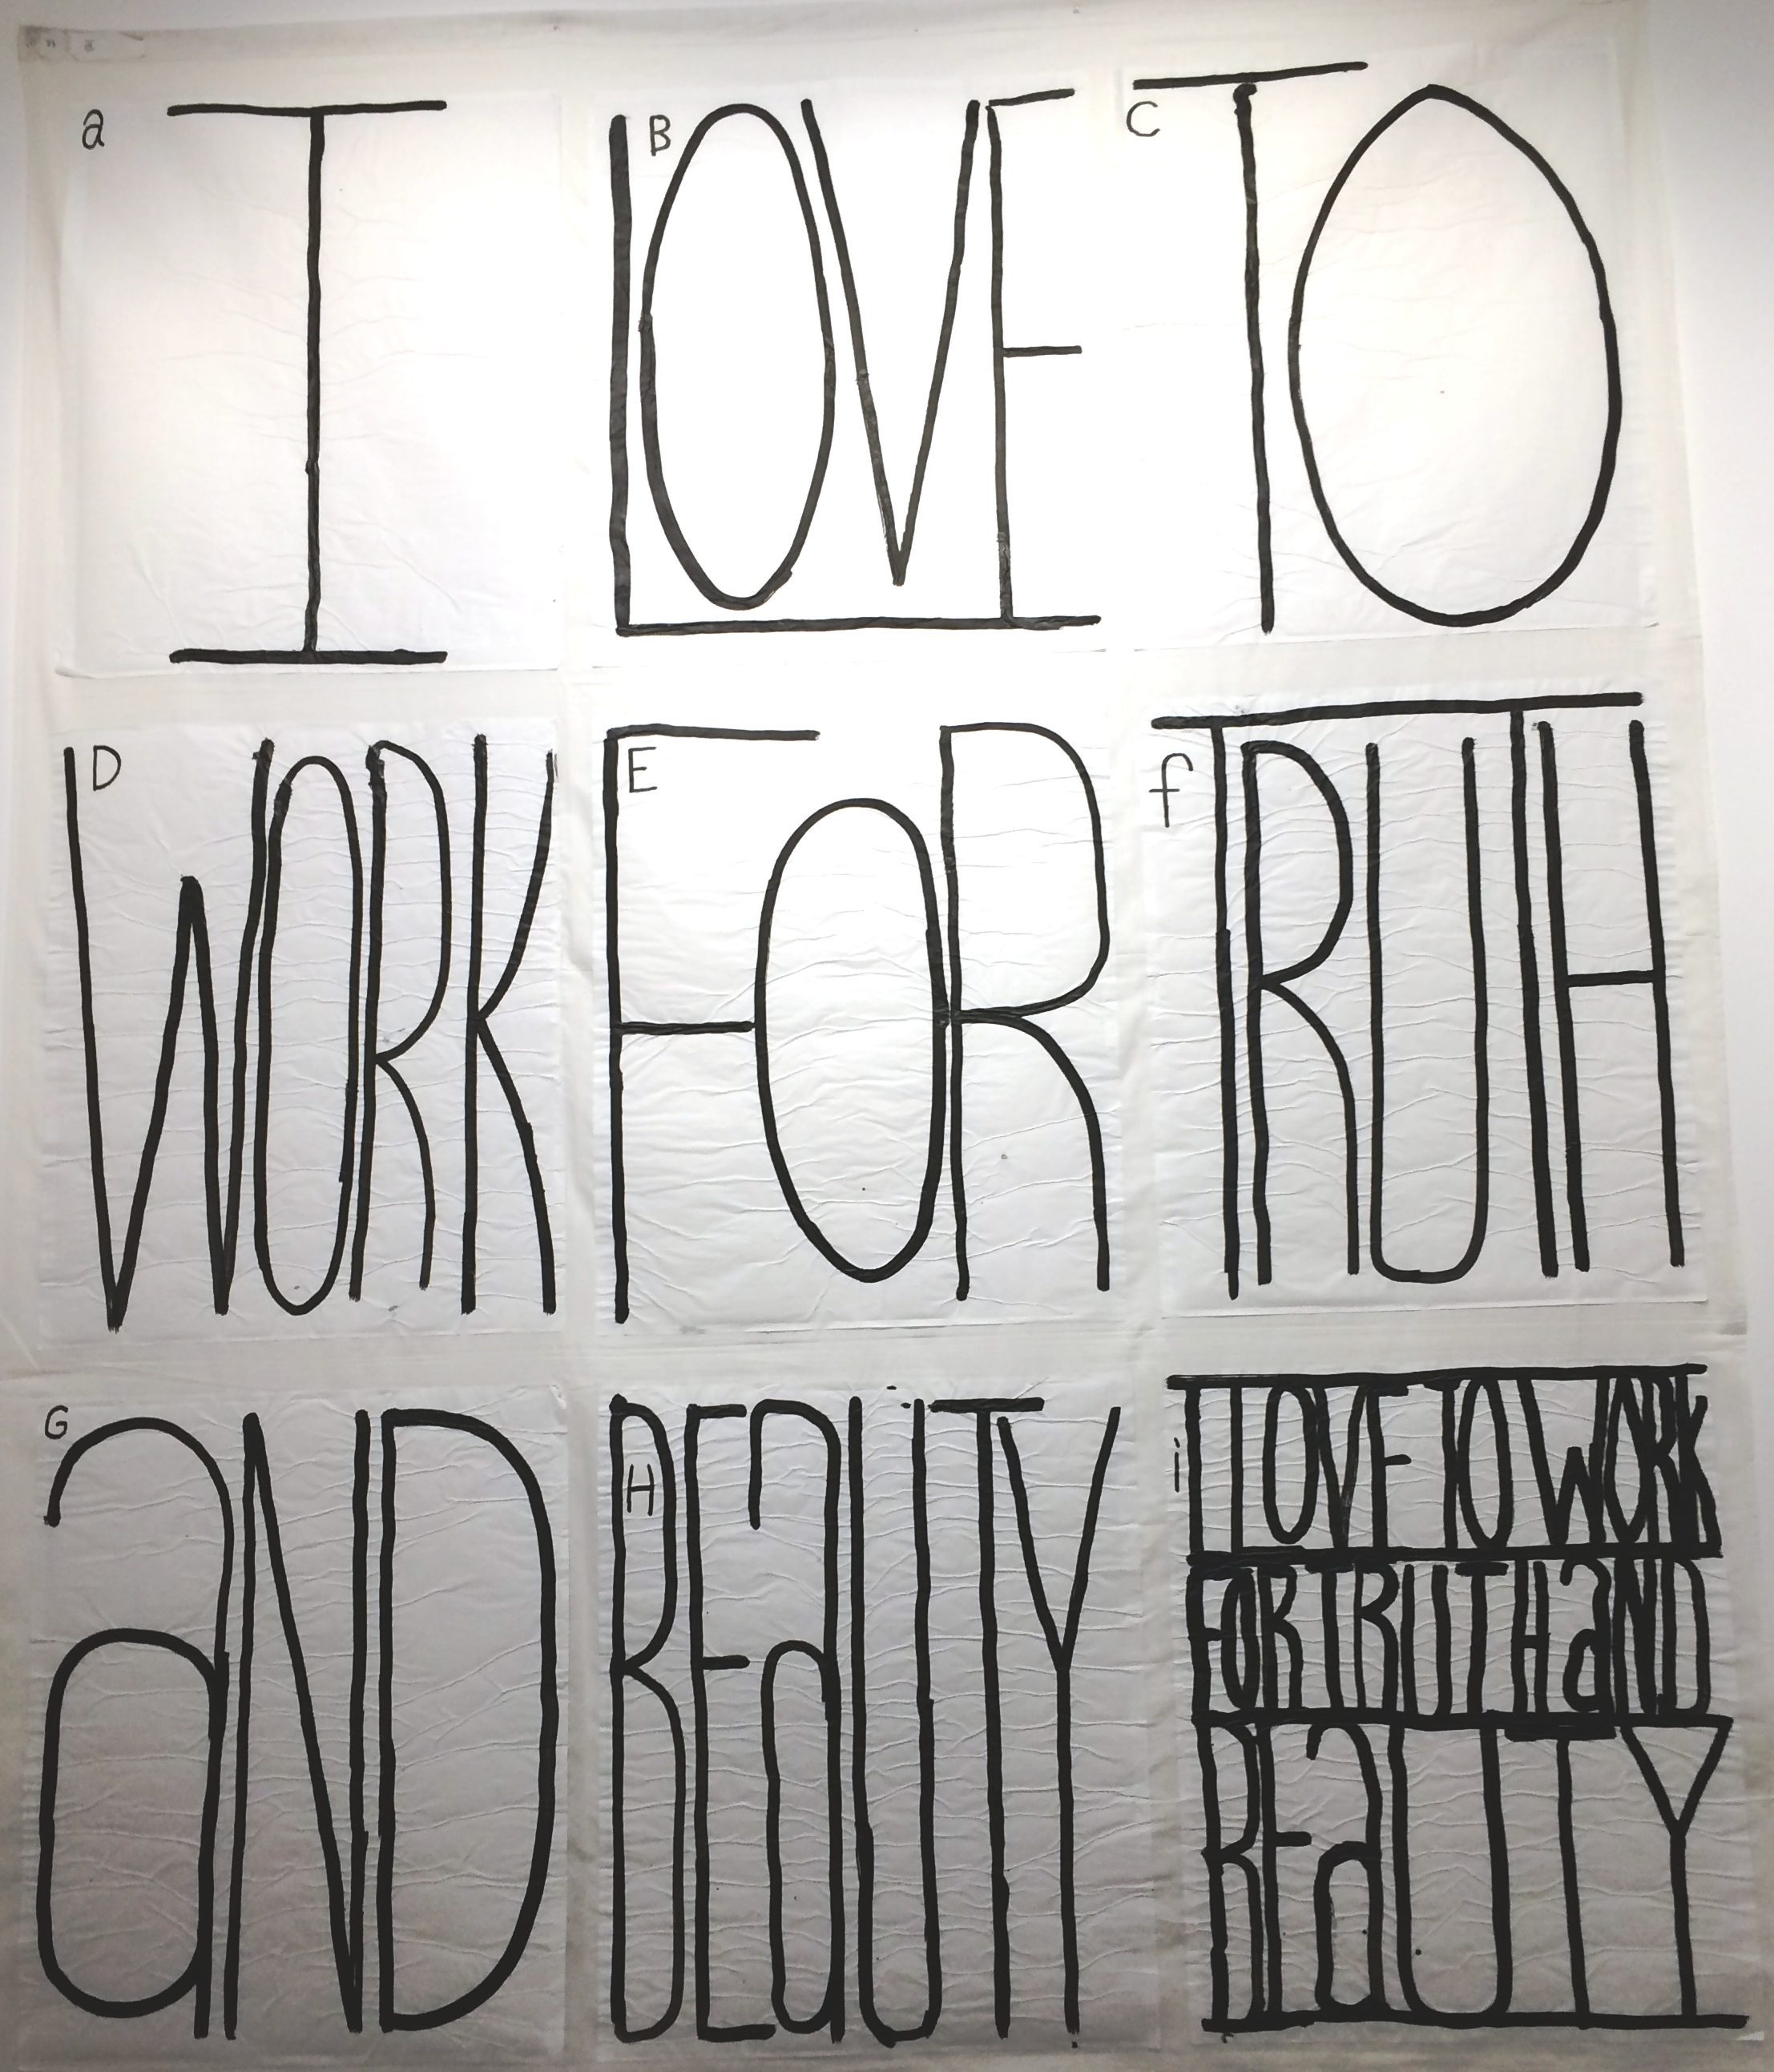 a I
B LOVE
C TO
D WORK
E FOR
f TRUTH
G aND
H BEaUTY
i I LOVE TO WORK
FOR TRUTH aND
BEaUTY